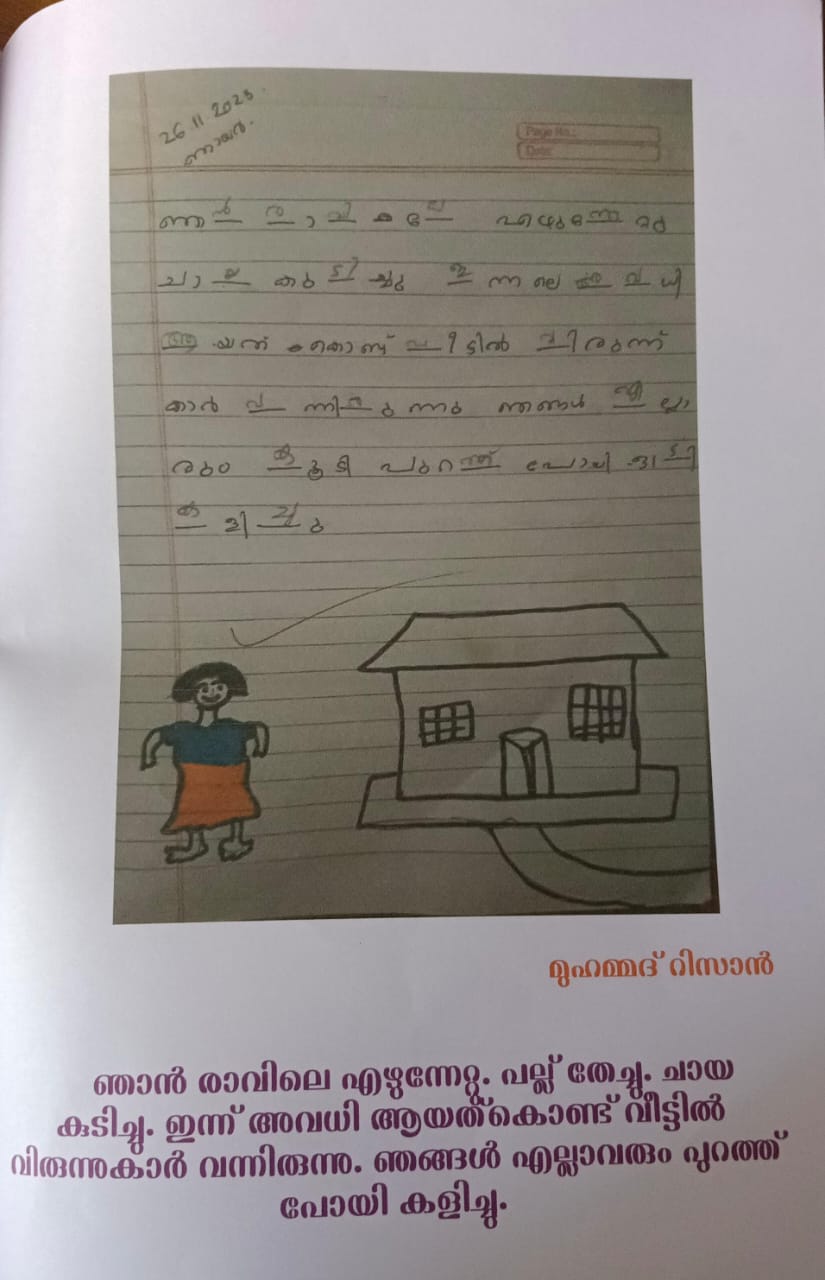 26.11.2023
ഞായർ.
Page No.:
Date:
ഞാൻ രാവിലെ എഴുന്നേറ്റ
ചായ കുടിച്ചു ഇന്നലെ അവധി
ആയത് കൊണ്ട് വീട്ടിൽ വിരുന്ന്
കാർ വന്നിരുന്നു ഞങ്ങൾ എല്ലാ
രും കൂടി പുറത്ത് പോയി ഓടി
കളിച്ചു
മുഹമ്മദ് റിസാൻ
ഞാൻ രാവിലെ എഴുന്നേറ്റു. പല്ല് തേച്ചു. ചായ
കുടിച്ചു. ഇന്ന് അവധി ആയത്കൊണ്ട് വീട്ടിൽ
വിരുന്നുകാർ വന്നിരുന്നു. ഞങ്ങൾ എല്ലാവരും പുറത്ത്
പോയി കളിച്ചു.